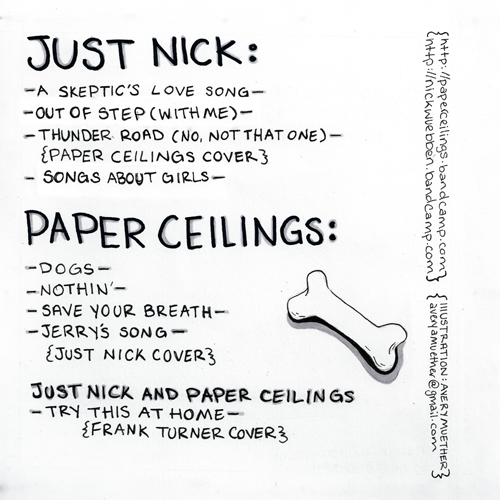 JUST NICK:
-A SKEPTIC'S LOVE SONG-
-OUT OF STEP (WITH ME)-
-THUNDER ROAD (NO, NOT THAT ONE)-
{PAPER CEILINGS COVER}
- SONGS ABOUT GIRLS-
PAPER CEILINGS:
-DOGS-
-NOTHIN'-
-SAVE YOUR BREATH-
-JERRY'S SONG-
{JUST NICK COVER}
JUST NICK AND PAPER CEILINGS
-TRY THIS AT HOME-
{FRANK TURNER COVER}
{http://paperceilings.bandcamp.com}
{http://nickwuebben.bandcamp.com}
{ILLUSTRATION: AVERY MUETHER}
{averyamuether@gmail.com}